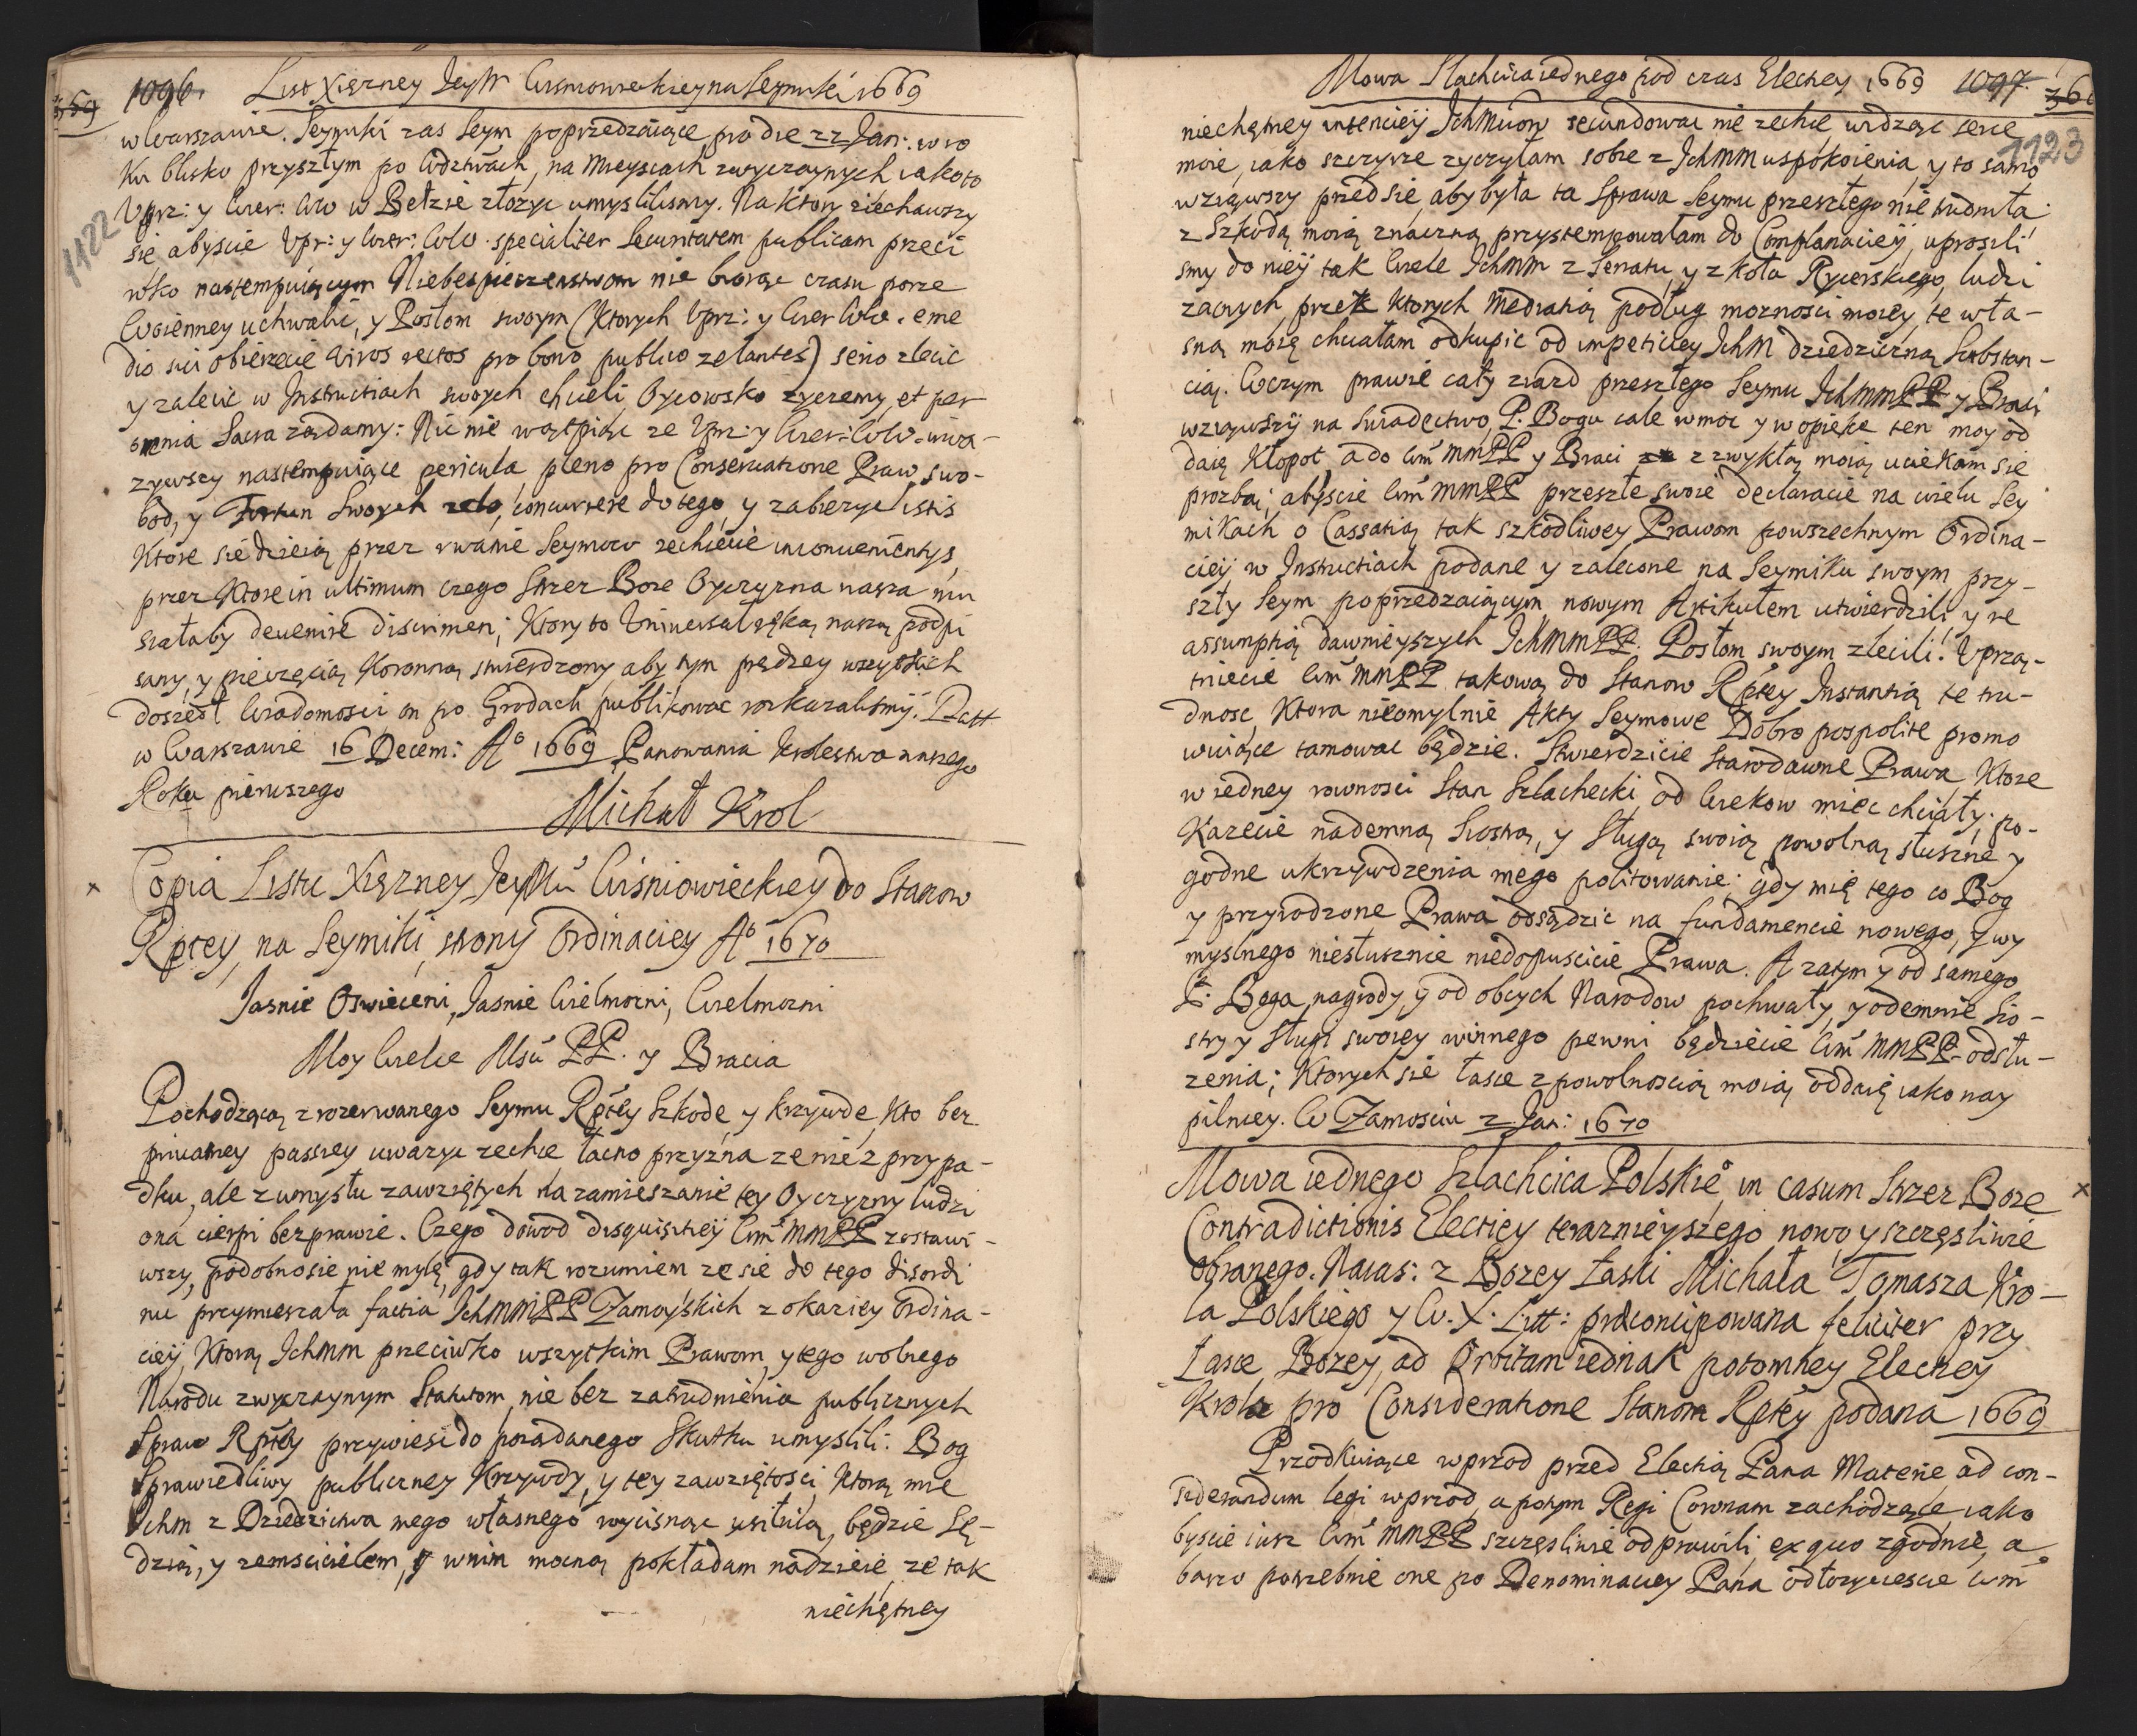 359 1096. List Xiężney JeyM Wisniowieckiey na Seymiki 1669
w Warszawie. Seymiki zas Seym poprzedzaiące pro die 22 Jan: w ro
ku blisko przyszłym po Wdztwach, na mieyscach zwyczaynych iako to
Uprz: y Wier: WW w Bełzie złożyc umyslilismy. Na ktory ziechawszy
1122
się abyscie Upr: y Wier: WW specialiter Securitatem publicam przeci
wko nastempuiącym Niebespieczenstwom nie biorąc czasu porze
Woienney uchwalić, y Posłom swoym (ktorych Uprz: y Wier WW. e me
dio sui obierzecie viros rectos pro bono publico zelantes) serio zlecic
y zalecic w Instructiach swoych chcieli Oycowsko życzemy, et per
omnia Sacra ządamy: Nic nie wątpiąc ze Uprz: y Wier: WW. uwa-
zywszy nastempuiące pericula, pleno pro Conservatione Praw, swo-
bod, y Fortun Swoych zelo, concurrere do tego, y zabieżyc istis
ktore sie dzieią przez rwanie Seymow zechcecie inconvenientys,
przez ktore in ultimum czego Strzez Boze Oyczyzna nasza mu
siałaby devenire discrimen; Ktory to Uniwersał ręką naszą podpi
sany, y pieczęcią Koronną stwierdzony aby tym prędzey wszystkich
doszedł wiadomosci on po Grodach publikowac roskazalismy. Datt
w Warszawie 16 Decem: Aº 1669 Panowania Krolestwa naszego
Roku pierwszego
Michał Krol
Copia Listu Xiężney JeyMci Wiśniowieckiey do Stanow
Rptey, na Seymiki, strony Ordinaciey Aº 1670
Jasnie Oswieceni, Jasnie Wielmozni, Wielmozni
Moy Wielce Msci PP. y Bracia
Pochodzącą z rozerwanego Seymu Rptey Szkodę, y krzywdę, kto bez
privatney passiey uwazyc zechce, łacno przyzna ze nie z przypa-
dku, ale z umysłu zawziętych na zamieszanie tey Oyczyzny ludzi
ona cierpi bezprawie. Czego dowod disquisitiey Wm MMPP zostawi-
wszy, podobno sie nie mylę, gdy tak rozumiem ze sie do tego disordi
nu przymieszała factia IchMMPP Zamoyskich z okaziey Ordina-
ciey, ktorą Ichmm przeciwko wszytkim Prawom, y tego wolnego
Narodu zwyczaynym Statutom, nie bez zatrudnienia publicznych
spraw Rptey przywiesc do pożądanego skutku umyslili. Bog
sprawiedliwy publiczney krzywdy, y tey zawziętosci, ktorą mie
Ichm z Dziedzictwa mego własnego wycisnąc usiłuią, będzie Sę-
dzią, y zemscicielem, y w nim mocną pokładam nadzieie, ze tak
niechętney
Mowa Slachcica iednego pod czas Electiey 1669 1097. 360
1123
niechętney intenciey IchMciow secundowac nie zechce, widząc serce
moie, iako szczyrze zyczyłam sobie z Ichmm uspokoienia, y to samo
wziąwszy przed sie, aby była ta sprawa Seymu przeszłego nie trudniła
z Szkodą moią znaczną przystempowałam do Complanaciey, uprosili
smy do niey tak wiele Ichmm z Senatu, y z Koła Rycerskiego, ludzi
zacnych, przez ktorych mediatią podług moznosci moiey, te wła-
sną moię chciałam odkupic od impeticiey Ichm dziedziczną Substan-
cią. W czym prawie cały ziazd przeszłego Seymu IchmmPP y Braci
wziąwszy na swiadectwo, P. Bogu cale w moc y w opiekę ten moy od
daię kłopot, a do Wm MMPP y Braci z zwykłą moią uciekam sie
prozbą; abyscie Wm MMPP przeszłe swoie declaracie na wielu Sey
mikach o Cassatią tak szkodliwey Prawom powszechnym Ordina-
ciey, w Instructiach podane y zalecone, na Seymiku swoym przy-
szły Seym poprzedzaiącym nowym Artikułem utwierdzili, y re
assumptią dawnieyszych IchMMPP. Posłom swoym zlecili. Uprzą-
tniecie Wm MMPP takową do Stanow Rptey Instantią te tru-
dnosc, ktora nieomylnie Akty Seymowe Dobro pospolite promo
wuiące tamowac będzie. Stwierdzicie Starodawne Prawa, ktore
w iedney rownosci Stan Szlachecki, od wiekow miec chciały; po-
kazecie nademną Siostrą, y sługą swoią powolną, słuszne y
godne ukrzywdzenia mego politowanie; gdy mię tego co Bog
y przyrodzone Prawa odsądzic na fundamencie nowego, y wy
myslnego niesłusznie niedopuscicie Prawa. A zatym y od samego
P. Boga nagrody, y od obcych Narodow pochwały, y odemnie Sio-
stry y sługi swoiey winnego pewni będziecie Wm MMPP. odsłu-
zenia; ktorych sie łasce z powolnoscią moią oddaię iako nay
pilniey. W Zamosciu 2 Jan: 1670
Mowa iednego Szlachcica Polskiego in casum Strzez Boze
Contradictionis Electiey teraznieyszego nowo y szczęsliwie
obranego. Naias: z Bozey łaski Michała Tomasza Kro-
la Polskiego y W. X. Litt: praeconcipowana feliciter przy
łasce Bozey, ad Orbitam iednak potomney Electiey
Krola pro Consideratione Stanom Rptey podana 1669
Przodkuiące wprzod przed Electią Pana Materie ad con-
siderandum legi wprzod, a potym Regi Coronam zachodzące iako
byscie iusz Wm MMPP szczęsliwie odprawili, ex quo zgodnie, a
barzo potrzebnie one po Denominaciey Pana odłozyliscie Wm